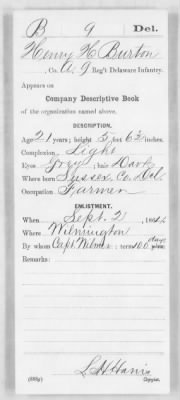 B 9 Del.
Henry H Burton
, Co. A, 9 Reg't Delaware Infantry.
Appears on
Company Descriptive Book
of the organization named above.
DESCRIPTION.
Age 21 years; height 5 feet 6¾ inches.
Complexion, Light
Eyes Grey; hair Dark
Where born Sussex Co. Del.
Occupation Farmer
ENLISTMENT.
When Sept. 2, 1864.
Where Wilmington
By whom Capt. Wilmer; term 100 days
Remarks:
L. H. Harris
Copyist.